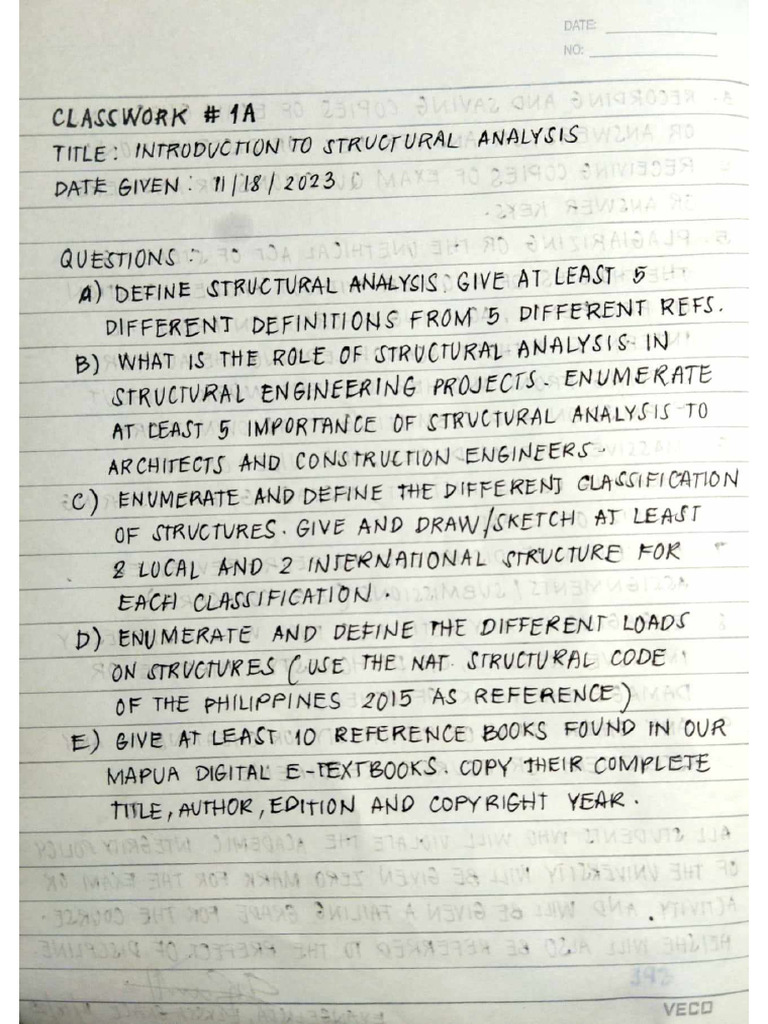 DATE:
NO:
CLASSWORK # 1A
TITLE: INTRODUCTION TO STRUCTURAL ANALYSIS
DATE GIVEN: 11/18/2023
QUESTIONS:
A) DEFINE STRUCTURAL ANALYSIS. GIVE AT LEAST 5
DIFFERENT DEFINITIONS FROM 5 DIFFERENT REFS.
B) WHAT IS THE ROLE OF STRUCTURAL ANALYSIS IN
STRUCTURAL ENGINEERING PROJECTS. ENUMERATE
AT LEAST 5 IMPORTANCE OF STRUCTURAL ANALYSIS TO
ARCHITECTS AND CONSTRUCTION ENGINEERS.
C) ENUMERATE AND DEFINE THE DIFFERENT CLASSIFICATION
OF STRUCTURES. GIVE AND DRAW/SKETCH AT LEAST
2 LOCAL AND 2 INTERNATIONAL STRUCTURE FOR
EACH CLASSIFICATION.
D) ENUMERATE AND DEFINE THE DIFFERENT LOADS
ON STRUCTURES (USE THE NAT. STRUCTURAL CODE
OF THE PHILIPPINES 2015 AS REFERENCE)
E) GIVE AT LEAST 10 REFERENCE BOOKS FOUND IN OUR
MAPUA DIGITAL E-TEXTBOOKS. COPY THEIR COMPLETE
TITLE, AUTHOR, EDITION AND COPYRIGHT YEAR.
VECO